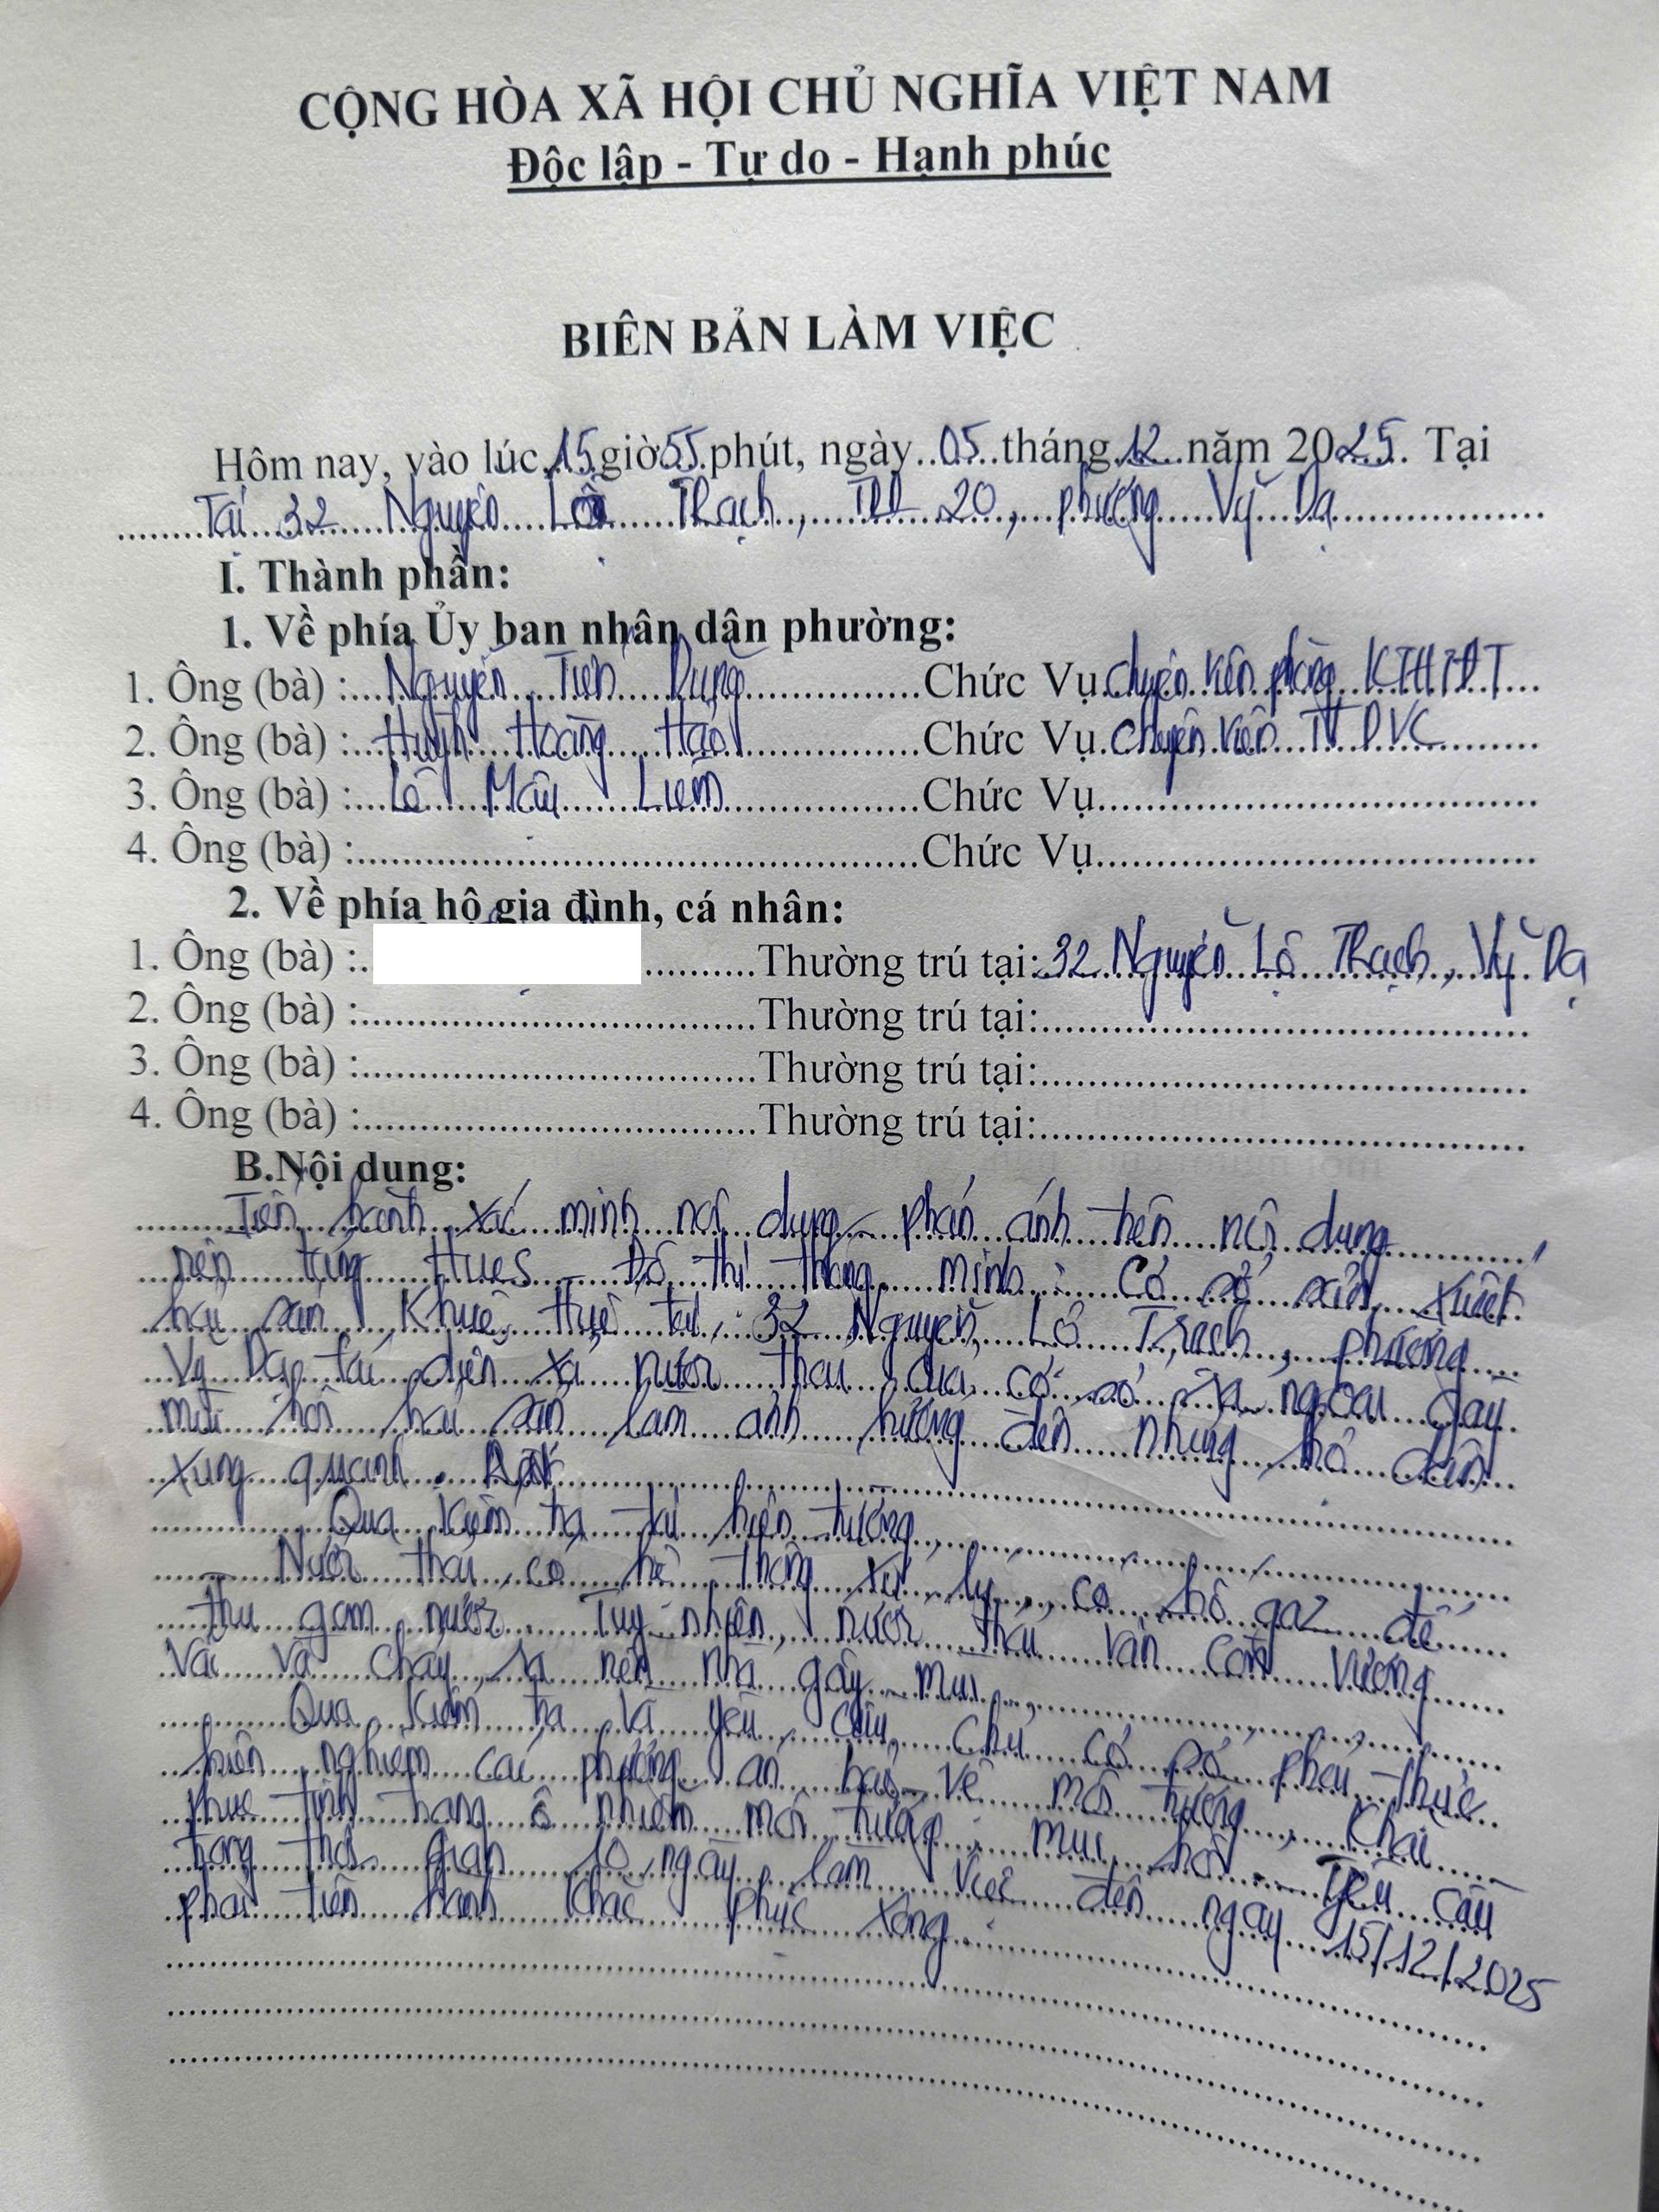 CỘNG HÒA XÃ HỘI CHỦ NGHĨA VIỆT NAM
Độc lập - Tự do - Hạnh phúc
BIÊN BẢN LÀM VIỆC
Hôm nay, vào lúc 15 giờ 55 phút, ngày 05 tháng 12 năm 2025. Tại
Tại 32 Nguyễn Lộ Thạch, TDP 20, phường Vỹ Dạ
I. Thành phần:
1. Về phía Ủy ban nhân dân phường:
1. Ông (bà) : Nguyễn Tiến Dũng Chức Vụ chuyên viên phòng KTHTĐT
2. Ông (bà) : Huỳnh Hoàng Hảo Chức Vụ chuyên viên TTDVC
3. Ông (bà) : Lê Mậu Liêm Chức Vụ
4. Ông (bà) : Chức Vụ
2. Về phía hộ gia đình, cá nhân:
1. Ông (bà) : Thường trú tại: 32 Nguyễn Lộ Thạch, Vỹ Dạ
2. Ông (bà) : Thường trú tại:
3. Ông (bà) : Thường trú tại:
4. Ông (bà) : Thường trú tại:
B.Nội dung:
Tiến hành xác minh nội dung phản ánh trên nội dung
nền tảng HueS - Đô thị thông minh: Cơ sở sản xuất
hải sản Khuê Huê tại 32 Nguyễn Lộ Trạch, phường
Vỹ Dạ tái diễn xả nước thải của cơ sở ra ngoài gây
mùi hôi hải sản làm ảnh hưởng đến những hộ dân
xung quanh.
Qua kiểm tra tại hiện trường,
Nước thải có hệ thống xử lý, có hố gaz để
thu gom nước. Tuy nhiên, nước thải vẫn còn vương
vãi và chảy ra nền nhà gây mùi.
Qua kiểm tra và yêu cầu, chủ cơ sở phải thực
hiện nghiêm các phương án bảo vệ môi trường, khắc
phục tình trạng ô nhiễm môi trường, mùi hôi. Yêu cầu
trong thời gian 10 ngày làm việc đến ngày 15/12/2025
phải tiến hành khắc phục xong.